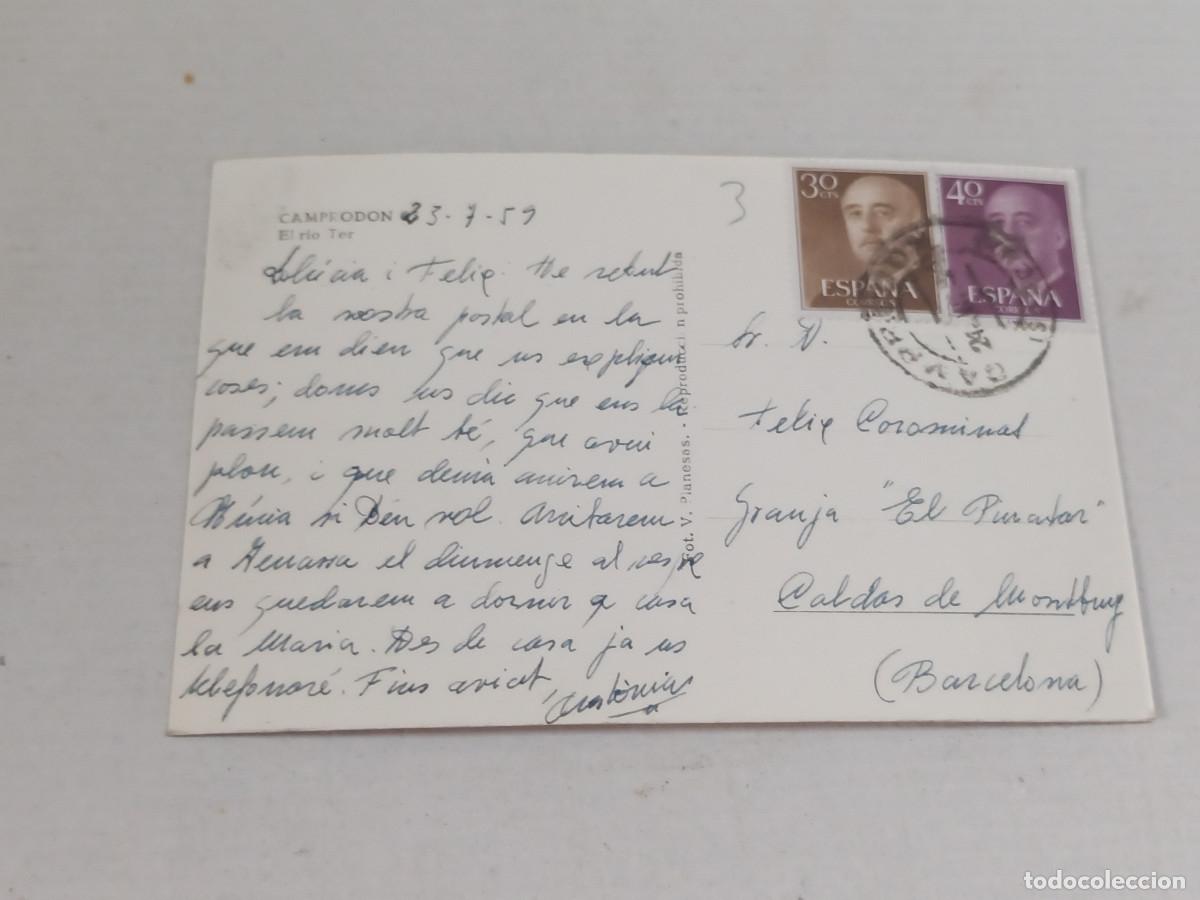 CAMPRODON 23-7-59
El río Ter
3
i Feliç. He rebut
la vostra postal en la
que em dieu que us expliqui
coses; doncs us dic que ens la
passem molt bé, que avui
plou, i que demà anirem a
Núria si Déu vol. Arribarem
a Terrassa el diumenge al vespre
ens quedarem a dormir a casa
la Maria. Des de casa ja us
telefonaré. Fins aviat
Antònia
Fot. V. Planesas. - Reproducción prohibida
30 CTS
ESPAÑA
CORREOS
40 CTS
ESPAÑA
CORREOS
24
Sr. D.
Felix Corominas
Granja "El Pinatar"
Caldas de Montbuy
(Barcelona)
todocoleccion